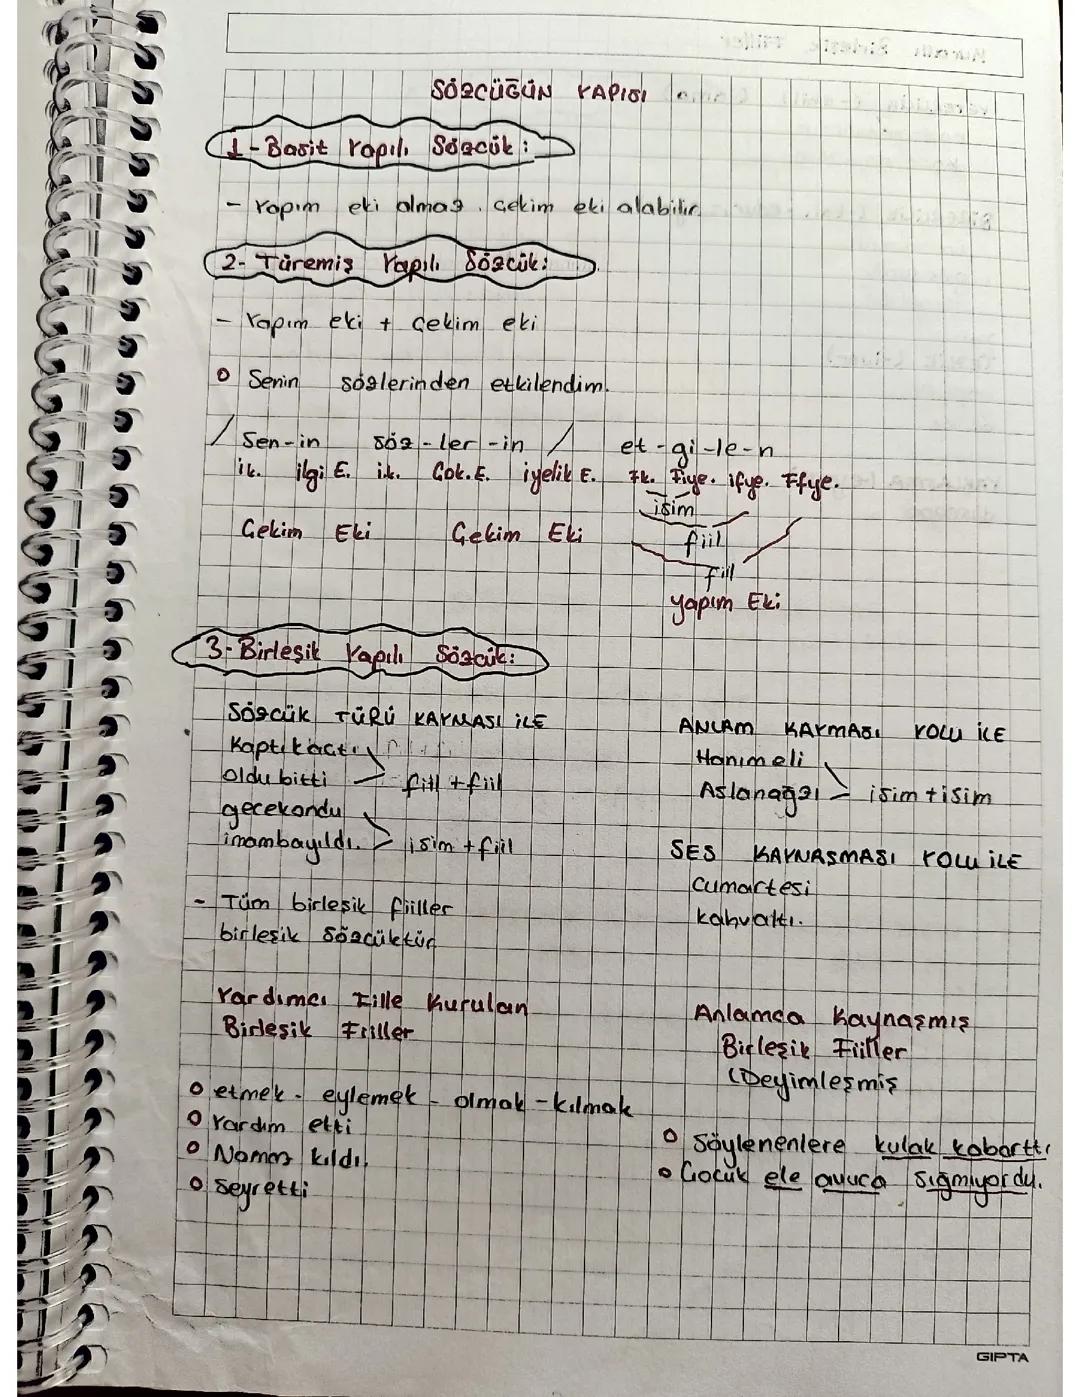 SÖZCÜĞÜN YAPISI
1-Basit Yapılı Sözcük:
- Yapım eki almaz. Çekim eki alabilir.
2- Türemiş Yapılı Sözcük:
- Yapım eki + çekim eki
Senin sözlerinden etkilendim.
/ Sen-in söz-ler-in / et-gi-le-n
ik. ilgi E. ik. Çok.E. iyelik E. Fk. Fiye. ifye. Ffye.
isim
Çekim Eki Çekim Eki fiil
fiil
yapım Eki
3-Birleşik Yapılı Sözcük:
SÖZCÜK TÜRÜ KAYMASI İLE
Kaptıkaçtı
oldu bitti fiil + fiil
gecekondu
imambayıldı. isim + fiil
- Tüm birleşik fiiller
birleşik sözcüktür
ANLAM KAYMASI YOLU İLE
Hanımeli
Aslanağzı isim + isim
SES KAYNAŞMASI YOLU İLE
Cumartesi
kahvaltı.
Yardımcı Fiille Kurulan
Birleşik Fiiller
etmek - eylemek - olmak - kılmak
Yardım etti
Namaz kıldı.
Seyretti
Anlamca Kaynaşmış
Birleşik Fiiller
(Deyimleşmiş
Söylenenlere kulak kabarttı
Çocuk ele avuca sığmıyordu.
GIPTA